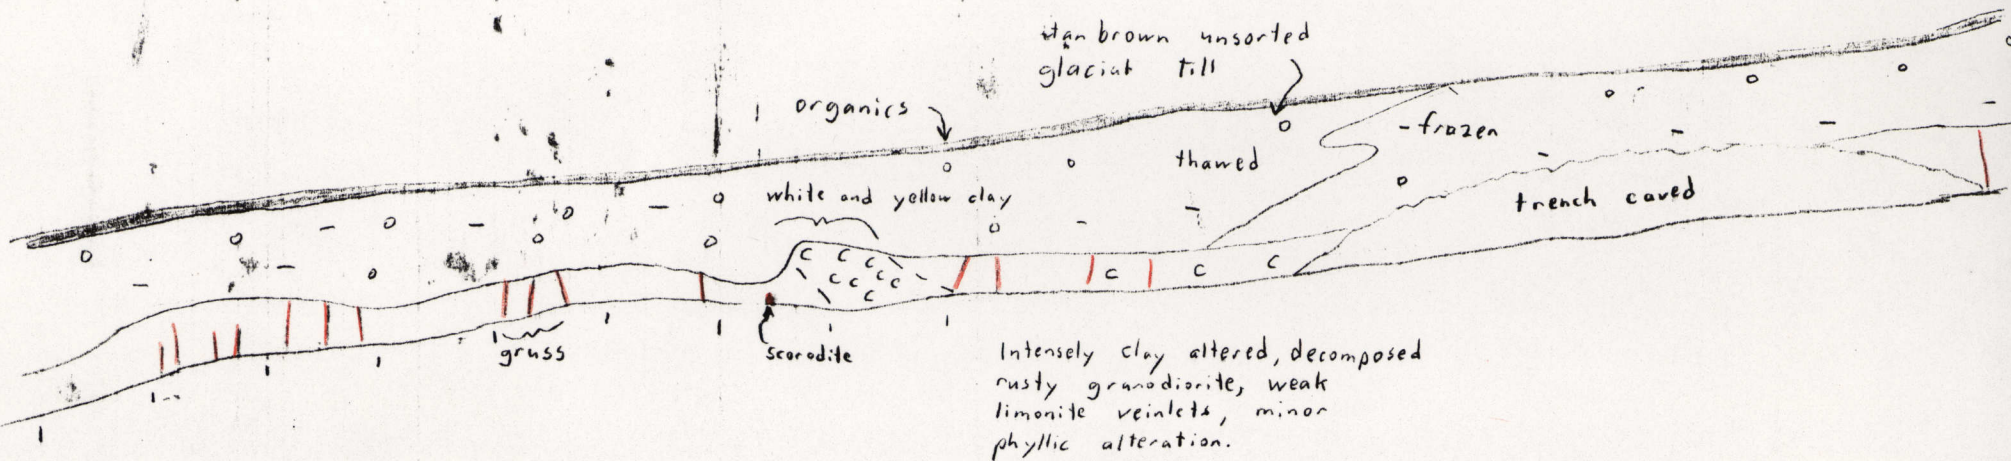 tan brown unsorted
glacial till
organics
-frozen
thawed
white and yellow clay
trench caved
c c c
c c c c
c
c c c
gruss
scorodite
Intensely clay altered, decomposed
rusty granodiorite, weak
limonite veinlets, minor
phyllic alteration.